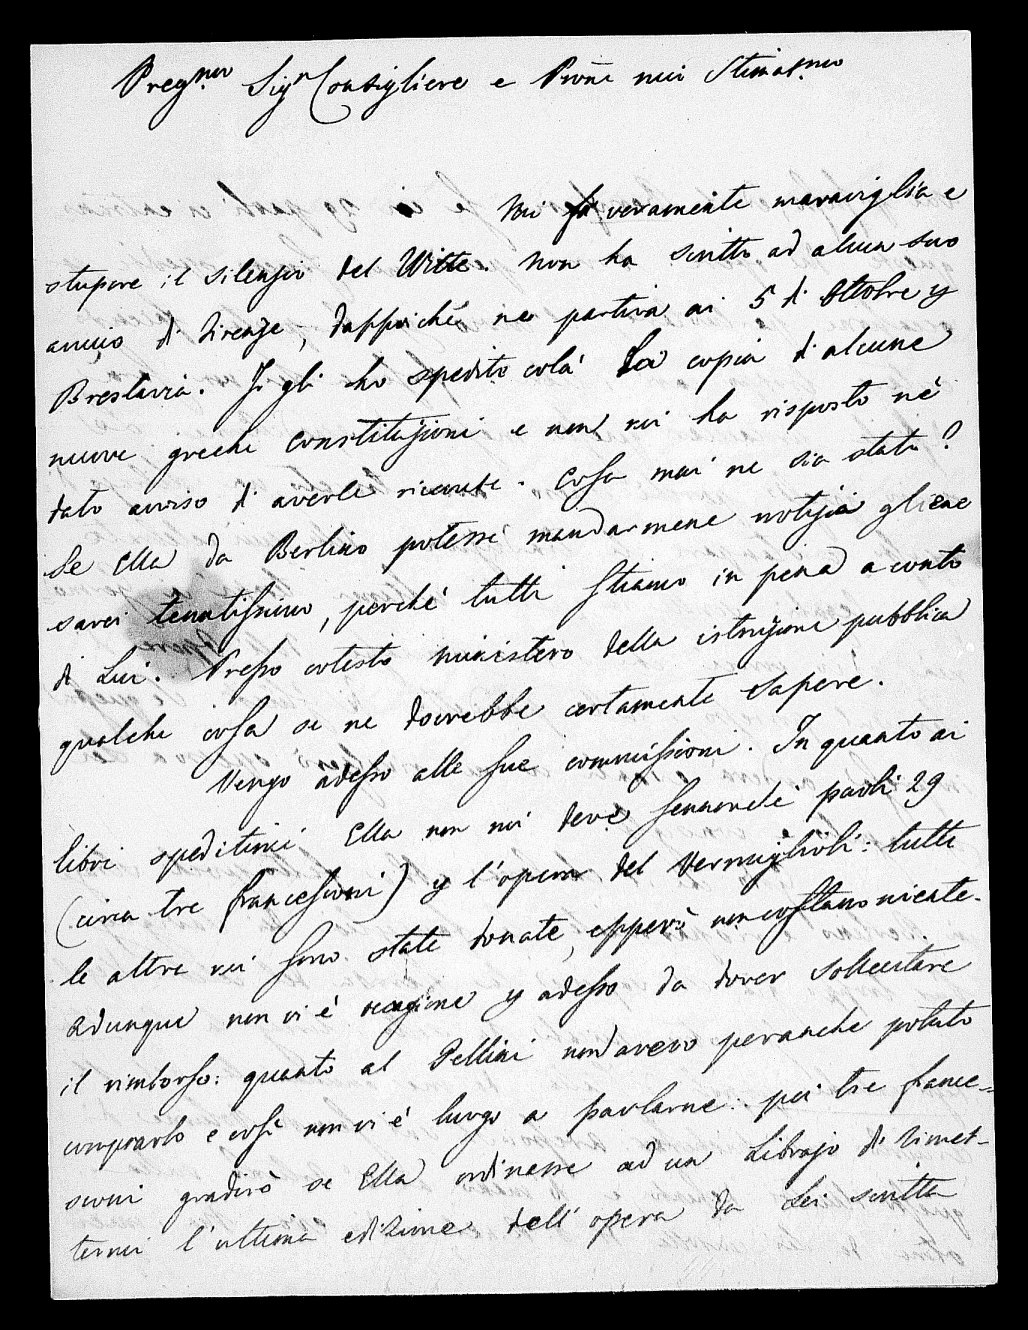 Preg.mo Sigr Consigliere e Prōne mii Stimat.mo
Mi fa veramente maraviglia e
stupore il silenzio del Witte. Non ha scritto ad alcun suo
amico di Firenze, dappoichè ne partiva ai 5 di Ottobre p
Breslavia. Io gli ho spedito colà la copia di alcune
nuove greche constituzioni e non mi ha risposto nè
dato avviso di averle ricevute. Cosa mai ne sia stato?
Se Ella da Berlino potesse mandarmene notizia gliene
sarei tenutissimo, perchè tutti stiamo in pena a conto
di Lui. Presso cotesto ministero della istruzione pubblica
qualche cosa se ne dovrebbe certamente sapere.
Vengo adesso alle sue commissioni. In quanto ai
libri speditimi Ella non mi deve sennonche paoli 29
(circa tre francesconi) p l'opera del Vermiglioli: tutte
le altre mi sono state donate, epperò non costano niente.
Adunque non vi è ragione p adesso da dover sollecitare
il rimborso: quanto al Pellini non avevo peranche potuto
comprarlo e così non vi è luogo a parlarne. pei tre france-
sconi gradirò se Ella ordinasse ad un Librajo di rimet-
termi l'ultima edizione dell'opera da Lei scritta